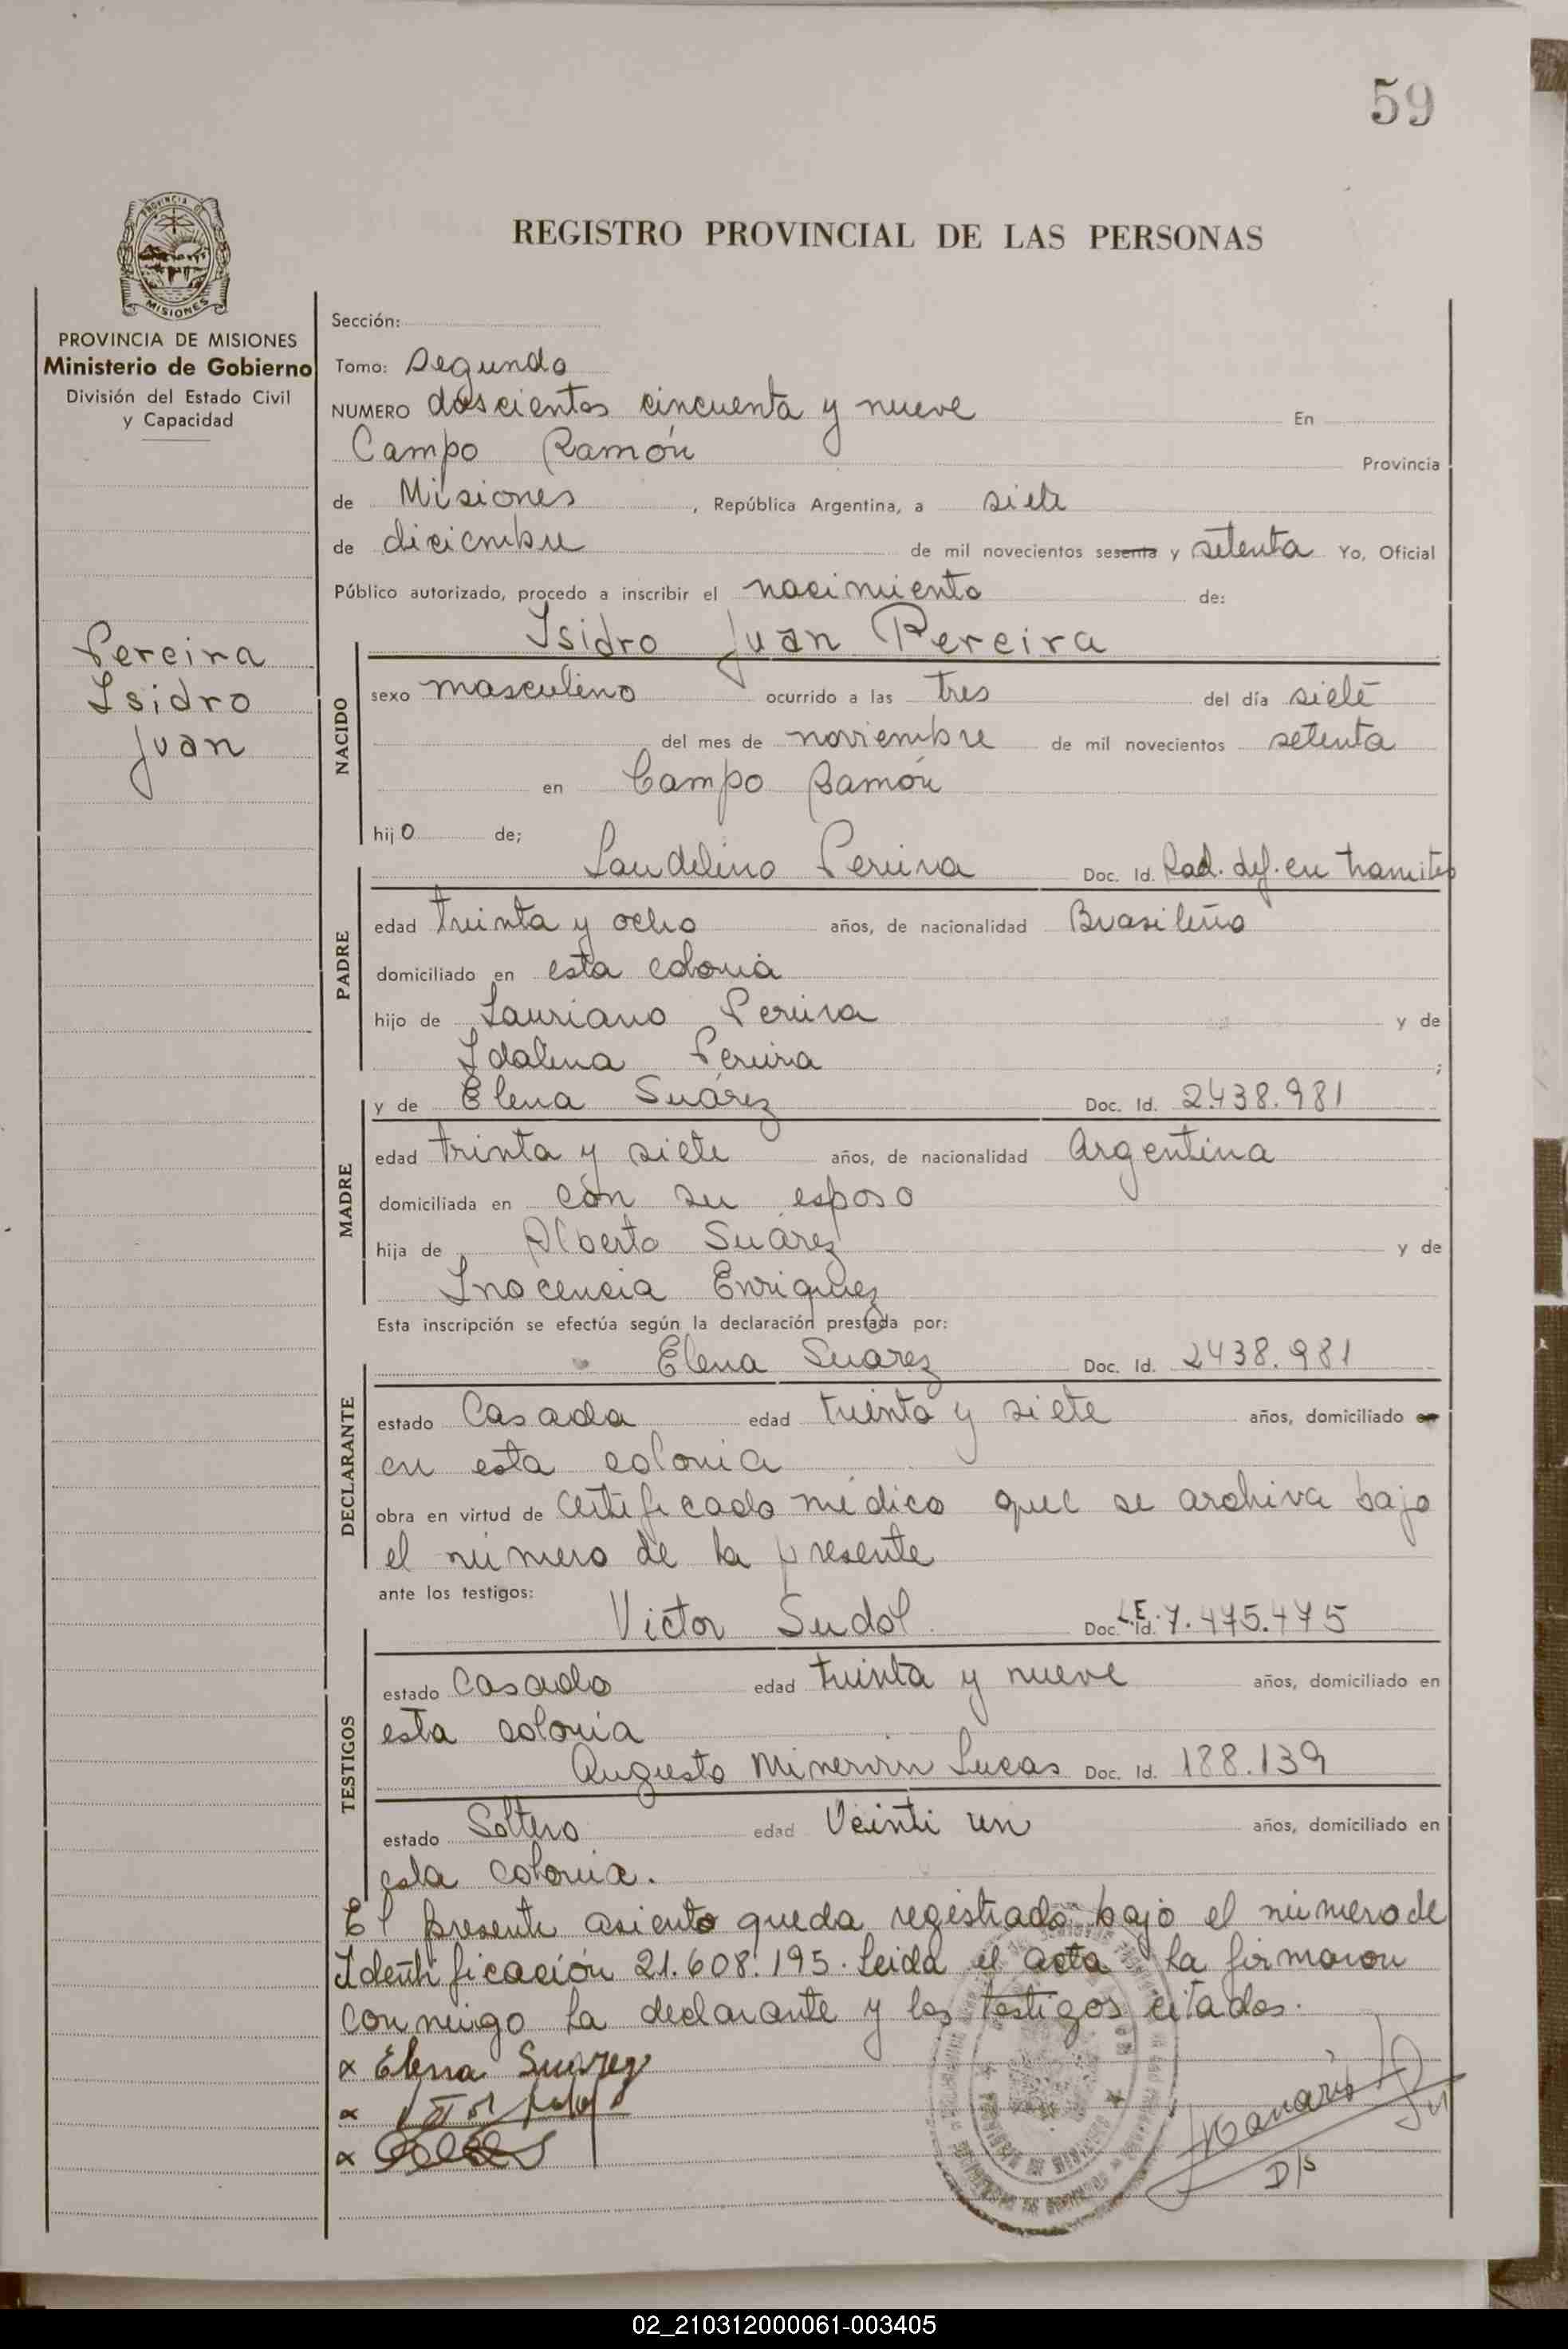 59
REGISTRO PROVINCIAL DE LAS PERSONAS
PROVINCIA DE MISIONES
PROVINCIA DE MISIONES
Ministerio de Gobierno
División del Estado Civil
y Capacidad
Pereira
Isidro
Juan
Sección:
Tomo: Segundo
NUMERO doscientos cincuenta y nueve En
Campo Ramón Provincia
de Misiones, República Argentina, a siete
de diciembre de mil novecientos sesenta y setenta Yo, Oficial
Público autorizado, procedo a inscribir el nacimiento de:
Isidro Juan Pereira
NACIDO
sexo masculino ocurrido a las tres del día siete
del mes de noviembre de mil novecientos setenta
en Campo Ramón
hijo de;
Laudelino Pereira Doc. Id. Rad. def. en tramites
PADRE
edad treinta y ocho años, de nacionalidad Brasileño
domiciliado en esta colonia
hijo de Lauriano Pereira y de
Idalina Pereira ;
y de Elena Suárez Doc. Id. 2.438.981
MADRE
edad trinta y siete años, de nacionalidad Argentina
domiciliada en con su esposo
hija de Alberto Suárez y de
Inocencia Enriquez
Esta inscripción se efectúa según la declaración prestada por:
Elena Suarez Doc. Id. 2438.981
DECLARANTE
estado Casada edad treinta y siete años, domiciliado en
en esta colonia
obra en virtud de certificado médico que se archiva bajo
el número de la presente
ante los testigos:
Victor Sudol Doc. Id. L.E. 7.475.475
TESTIGOS
estado Casado edad treinta y nueve años, domiciliado en
esta colonia
Augusto Minervin Lucas Doc. Id. 188.139
estado Soltero edad Veinti un años, domiciliado en
esta colonia.
El presente asiento queda registrado bajo el número de
Identificación 21.608.195. Leida el acta la firmaron
conmigo la declarante y los testigos citados.
x Elena Suarez
x
x
D/s
02_210312000061-003405